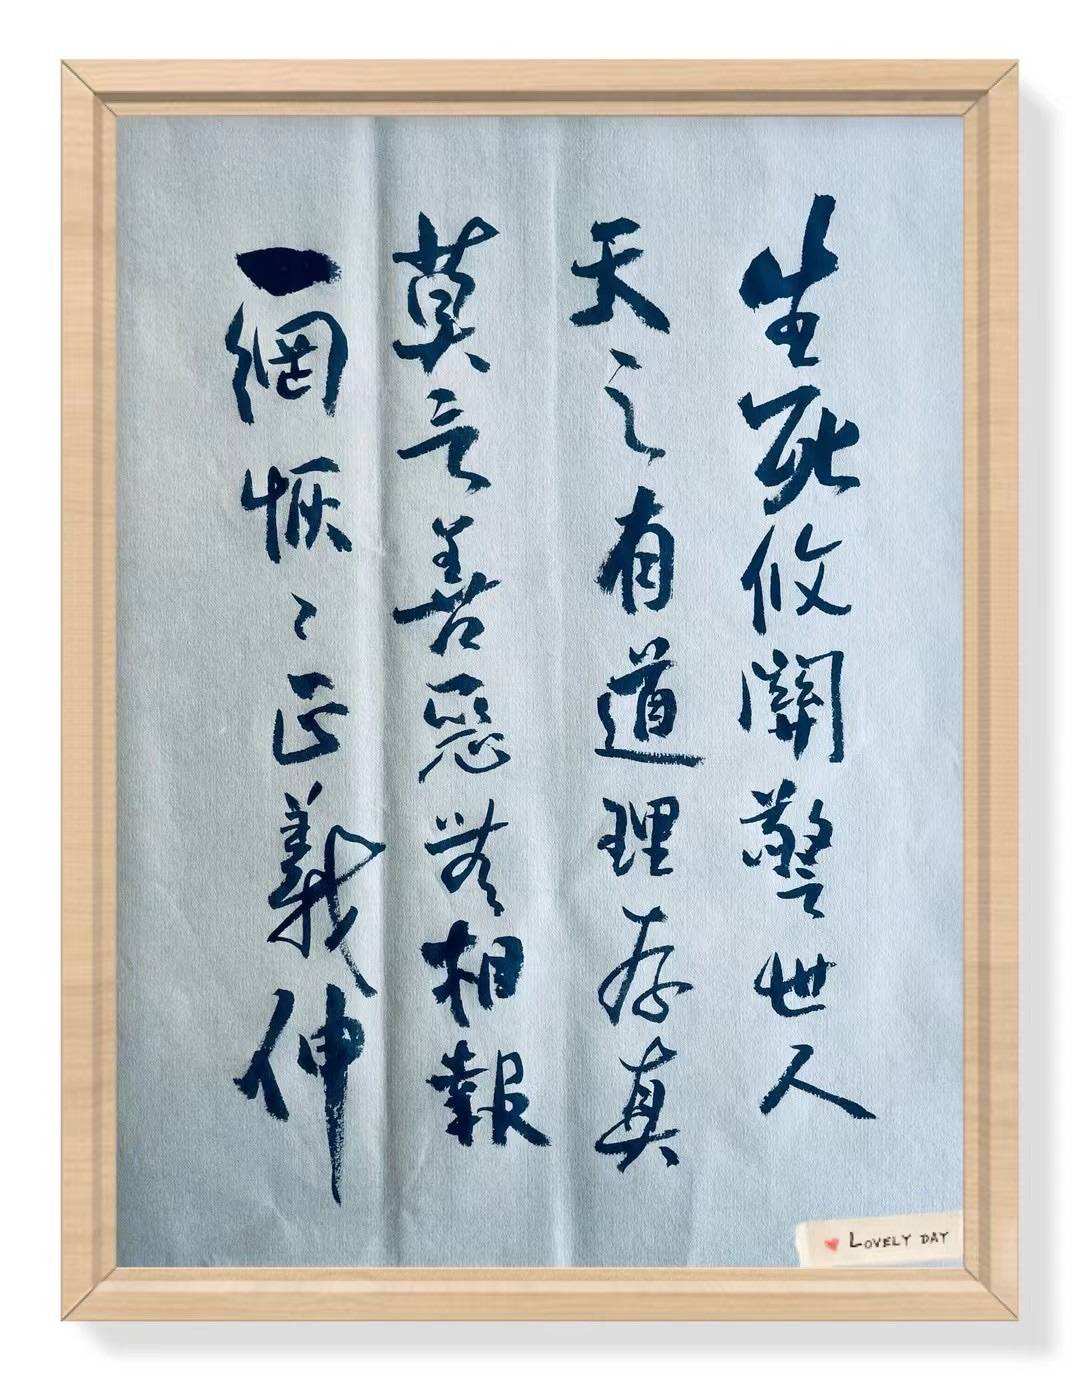 生死攸關警世人
天之有道理存真
莫言善惡無相報
一網恢〻正義伸
LOVELY DAY